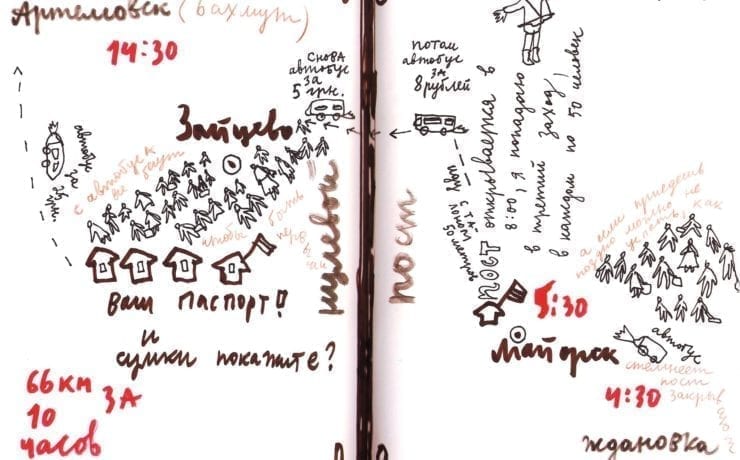 Артемовск (Бахмут)
14:30
снова
автобус
за
5 грн.
Зайцево
с автобуса
все бегут
чтобы быть
Ваш паспорт!
и
сумки покажите?
66 км
за
10
часов
нулевой
пост
потом
автобус
за
8 рублей
пост открывается в
8:00, я попадаю
в третий заход!
в каждом по 50 человек
а если приедешь
поздно можно не
успеть
5:30
Майорск
автобус
стемнеет
пост
закрыв
4:30
Ждановка